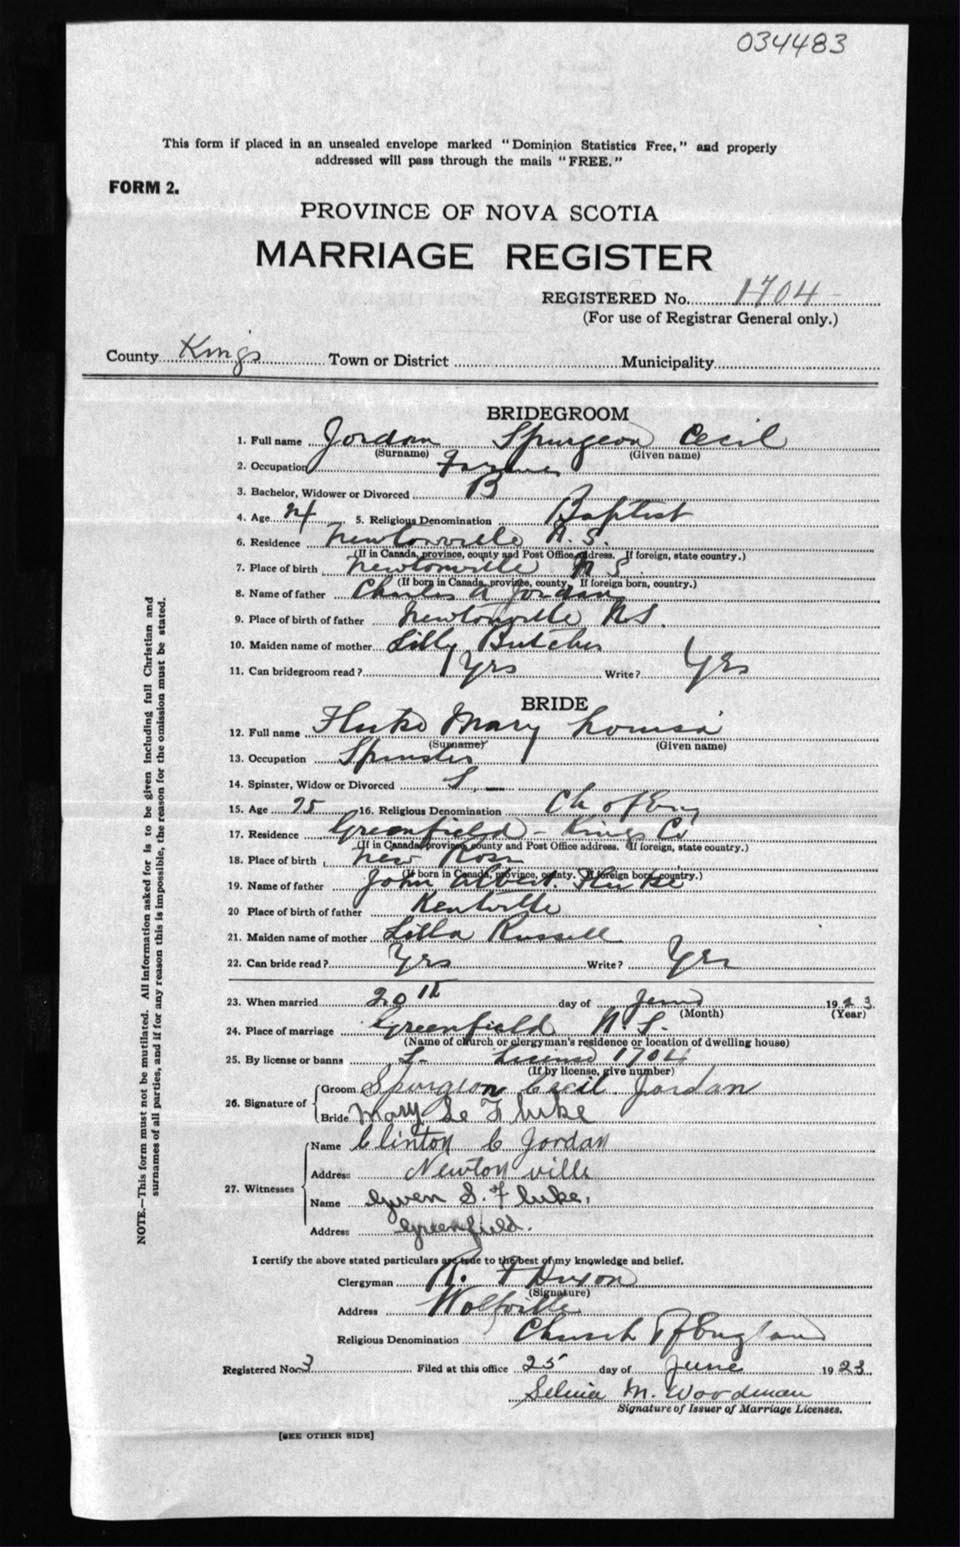 034483
This form if placed in an unsealed envelope marked "Dominion Statistics Free," and properly
addressed will pass through the mails "FREE."
FORM 2.
PROVINCE OF NOVA SCOTIA
MARRIAGE REGISTER
REGISTERED No. 1704
(For use of Registrar General only.)
County Kings Town or District Municipality
BRIDEGROOM
1. Full name Jordan Spurgeon Cecil
(Surname) (Given name)
2. Occupation Farmer
3. Bachelor, Widower or Divorced B
4. Age 24 5. Religious Denomination Baptist
6. Residence Newtonville N.S.
(If in Canada, province, county and Post Office address. If foreign, state country.)
7. Place of birth Newtonville N S
(If born in Canada, province, county. If foreign born, country.)
8. Name of father Charles A Jordan
9. Place of birth of father Newtonville N S.
10. Maiden name of mother Lilly Butcher
11. Can bridegroom read? Yes Write? Yes
BRIDE
12. Full name Fluke Mary Louisa
(Surname) (Given name)
13. Occupation Spinster
14. Spinster, Widow or Divorced S.
15. Age 25 16. Religious Denomination Ch of Eng
17. Residence Greenfield - Kings Co
(If in Canada province, county and Post Office address. If foreign, state country.)
18. Place of birth New Ross
(If born in Canada, province, county. If foreign born, country.)
19. Name of father John Albert Fluke
20 Place of birth of father Kentville
21. Maiden name of mother Lilla Russell
22. Can bride read? Yes Write? Yes
23. When married 20th day of June 1923
(Month) (Year)
24. Place of marriage Greenfield N.S.
(Name of church or clergyman's residence or location of dwelling house)
25. By license or banns L. License 1704
(If by license, give number)
26. Signature of Groom Spurgeon Cecil Jordan
Bride Mary Le Fluke
27. Witnesses Name Clinton C Jordan
Address Newtonville
Name Gwen S. Fluke.
Address Greenfield.
I certify the above stated particulars are true to the best of my knowledge and belief.
Clergyman R. F Dixon
(Signature)
Address Wolfville
Religious Denomination Church Of England
Registered No. 3 Filed at this office 25 day of June 1923
Selina M. Woodman
Signature of Issuer of Marriage Licenses.
[SEE OTHER SIDE]
NOTE.—This form must not be mutilated. All information asked for is to be given including full Christian and
surnames of all parties, and if for any reason this is impossible, the reason for the omission must be stated.